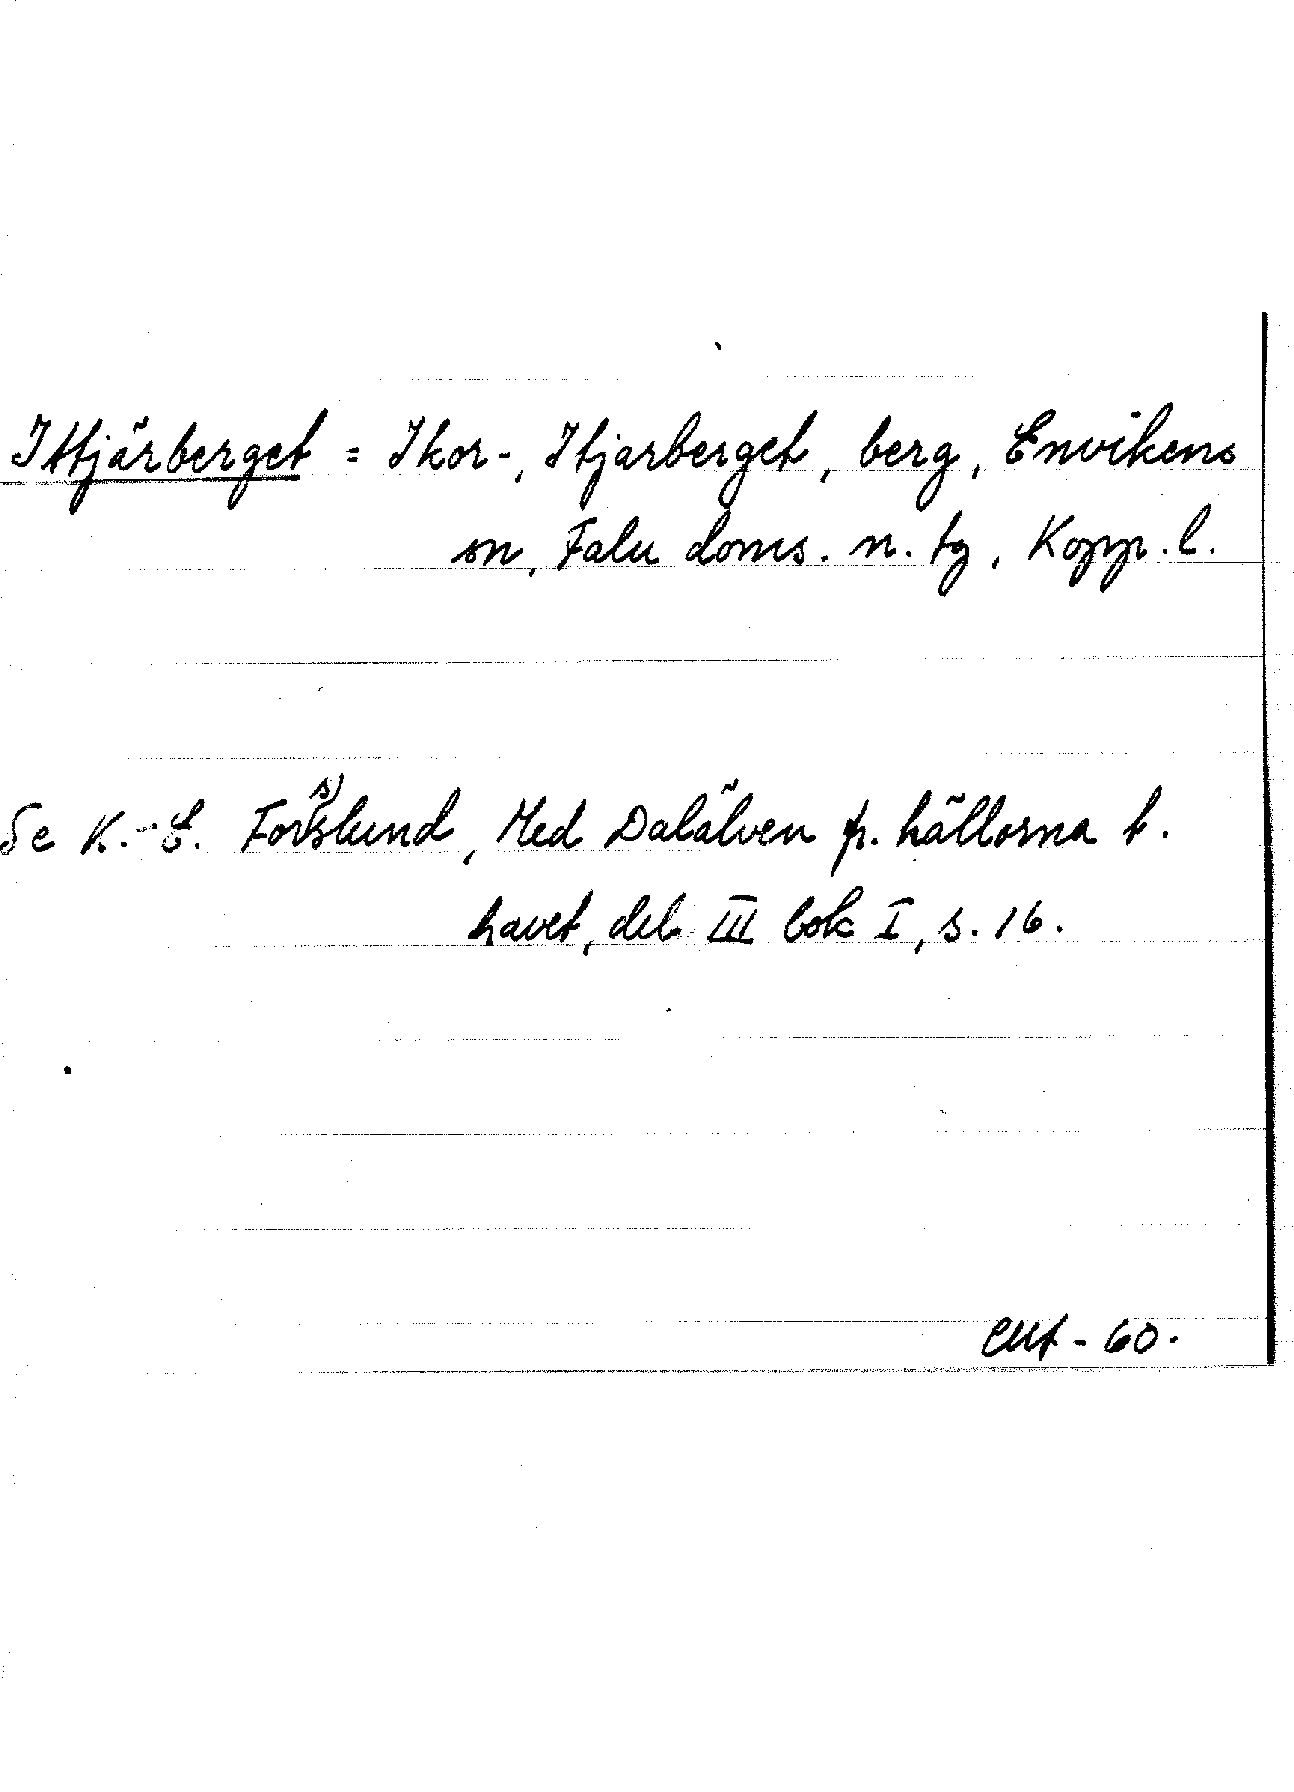 Ittjärberget = Ikor-, Itjarberget, berg, Envikens
sn, Falu doms. n. tg, Kopp. l.
Se K.-E. Forsslund, Med Dalälven fr. källorna t.
havet, del III bok I, s. 16.
- 60.